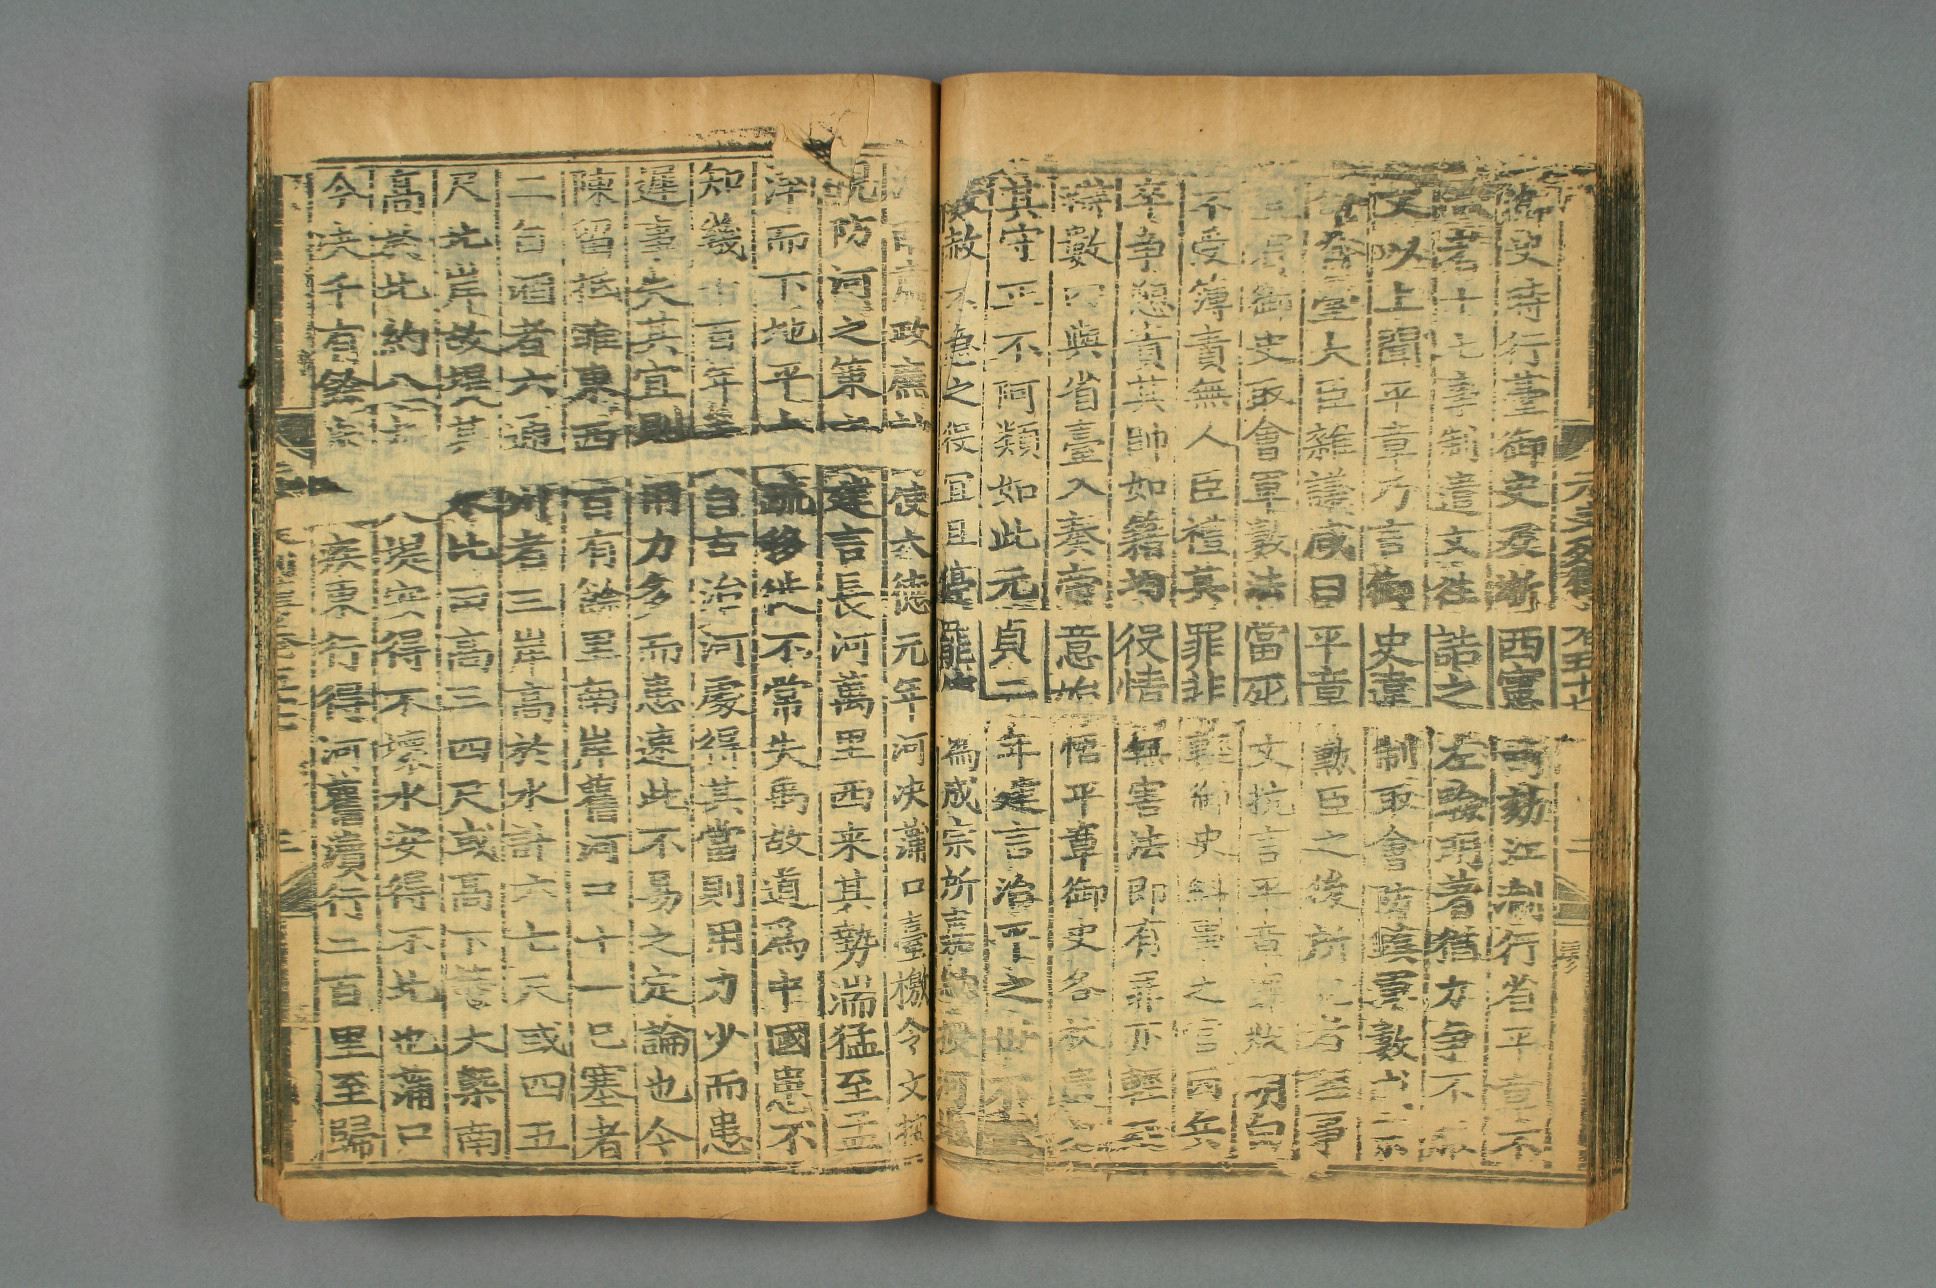 元史列傳卷五十七 二
御史時行臺御史及浙西憲司劾江浙行省平章不
法者十七事制遣文往詰之左驗明著猶力爭不
文以上聞平章乃言御史違制取會防鎮軍數
省臺大臣雜議咸曰平章勲臣之後所犯者輕事
宜宥御史取會軍數法當死文抗言平章罪狀明白
不受簿責無人臣禮其罪非輕御史糾事之官因兵
卒爭愬責其帥如籍均役情無害法即有罪亦輕至
數四與省臺入奏帝意始悟平章御史各杖遣之
其守正不阿類如此元貞二年建言治平之世不宜
數赦不急之役宜且停罷為成宗所嘉納授河
河南肅政廉訪使大德元年河決蒲口臺檄令文按
視防河之策文建言長河萬里西来其勢湍猛至孟
津而下地平土疏移徙不常失禹故道爲中國患不
知幾千百年矣自古治河處得其當則用力少而患
遲事失其宜則用力多而患速此不易之定論也今
陳留抵睢東西百有餘里南岸舊河口十一已塞者
二自涸者六通川者三岸高於水計六七尺或四五
尺北岸故堤其水比田高三四尺或高下等大槩南
高於北約八九尺堤安得不壞水安得不北也蒲口
今決千有餘步疾東行得河舊瀆行二百里至歸